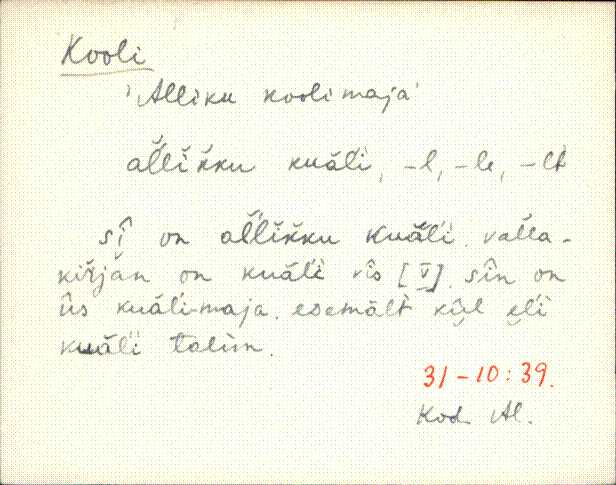 Kooli
'Alliku koolimaja'
al̆l̆ikku kuäl̆i, -l, -le, -lt
sî on al̆l̆ikku kuäl̆i. valla-
kirjan on kuäl̆i vîs [V]. sîn on
ûs kuäli-maja. esemält kûl eli
kuäl̆i talun.
31-10:39.
Kod Al.